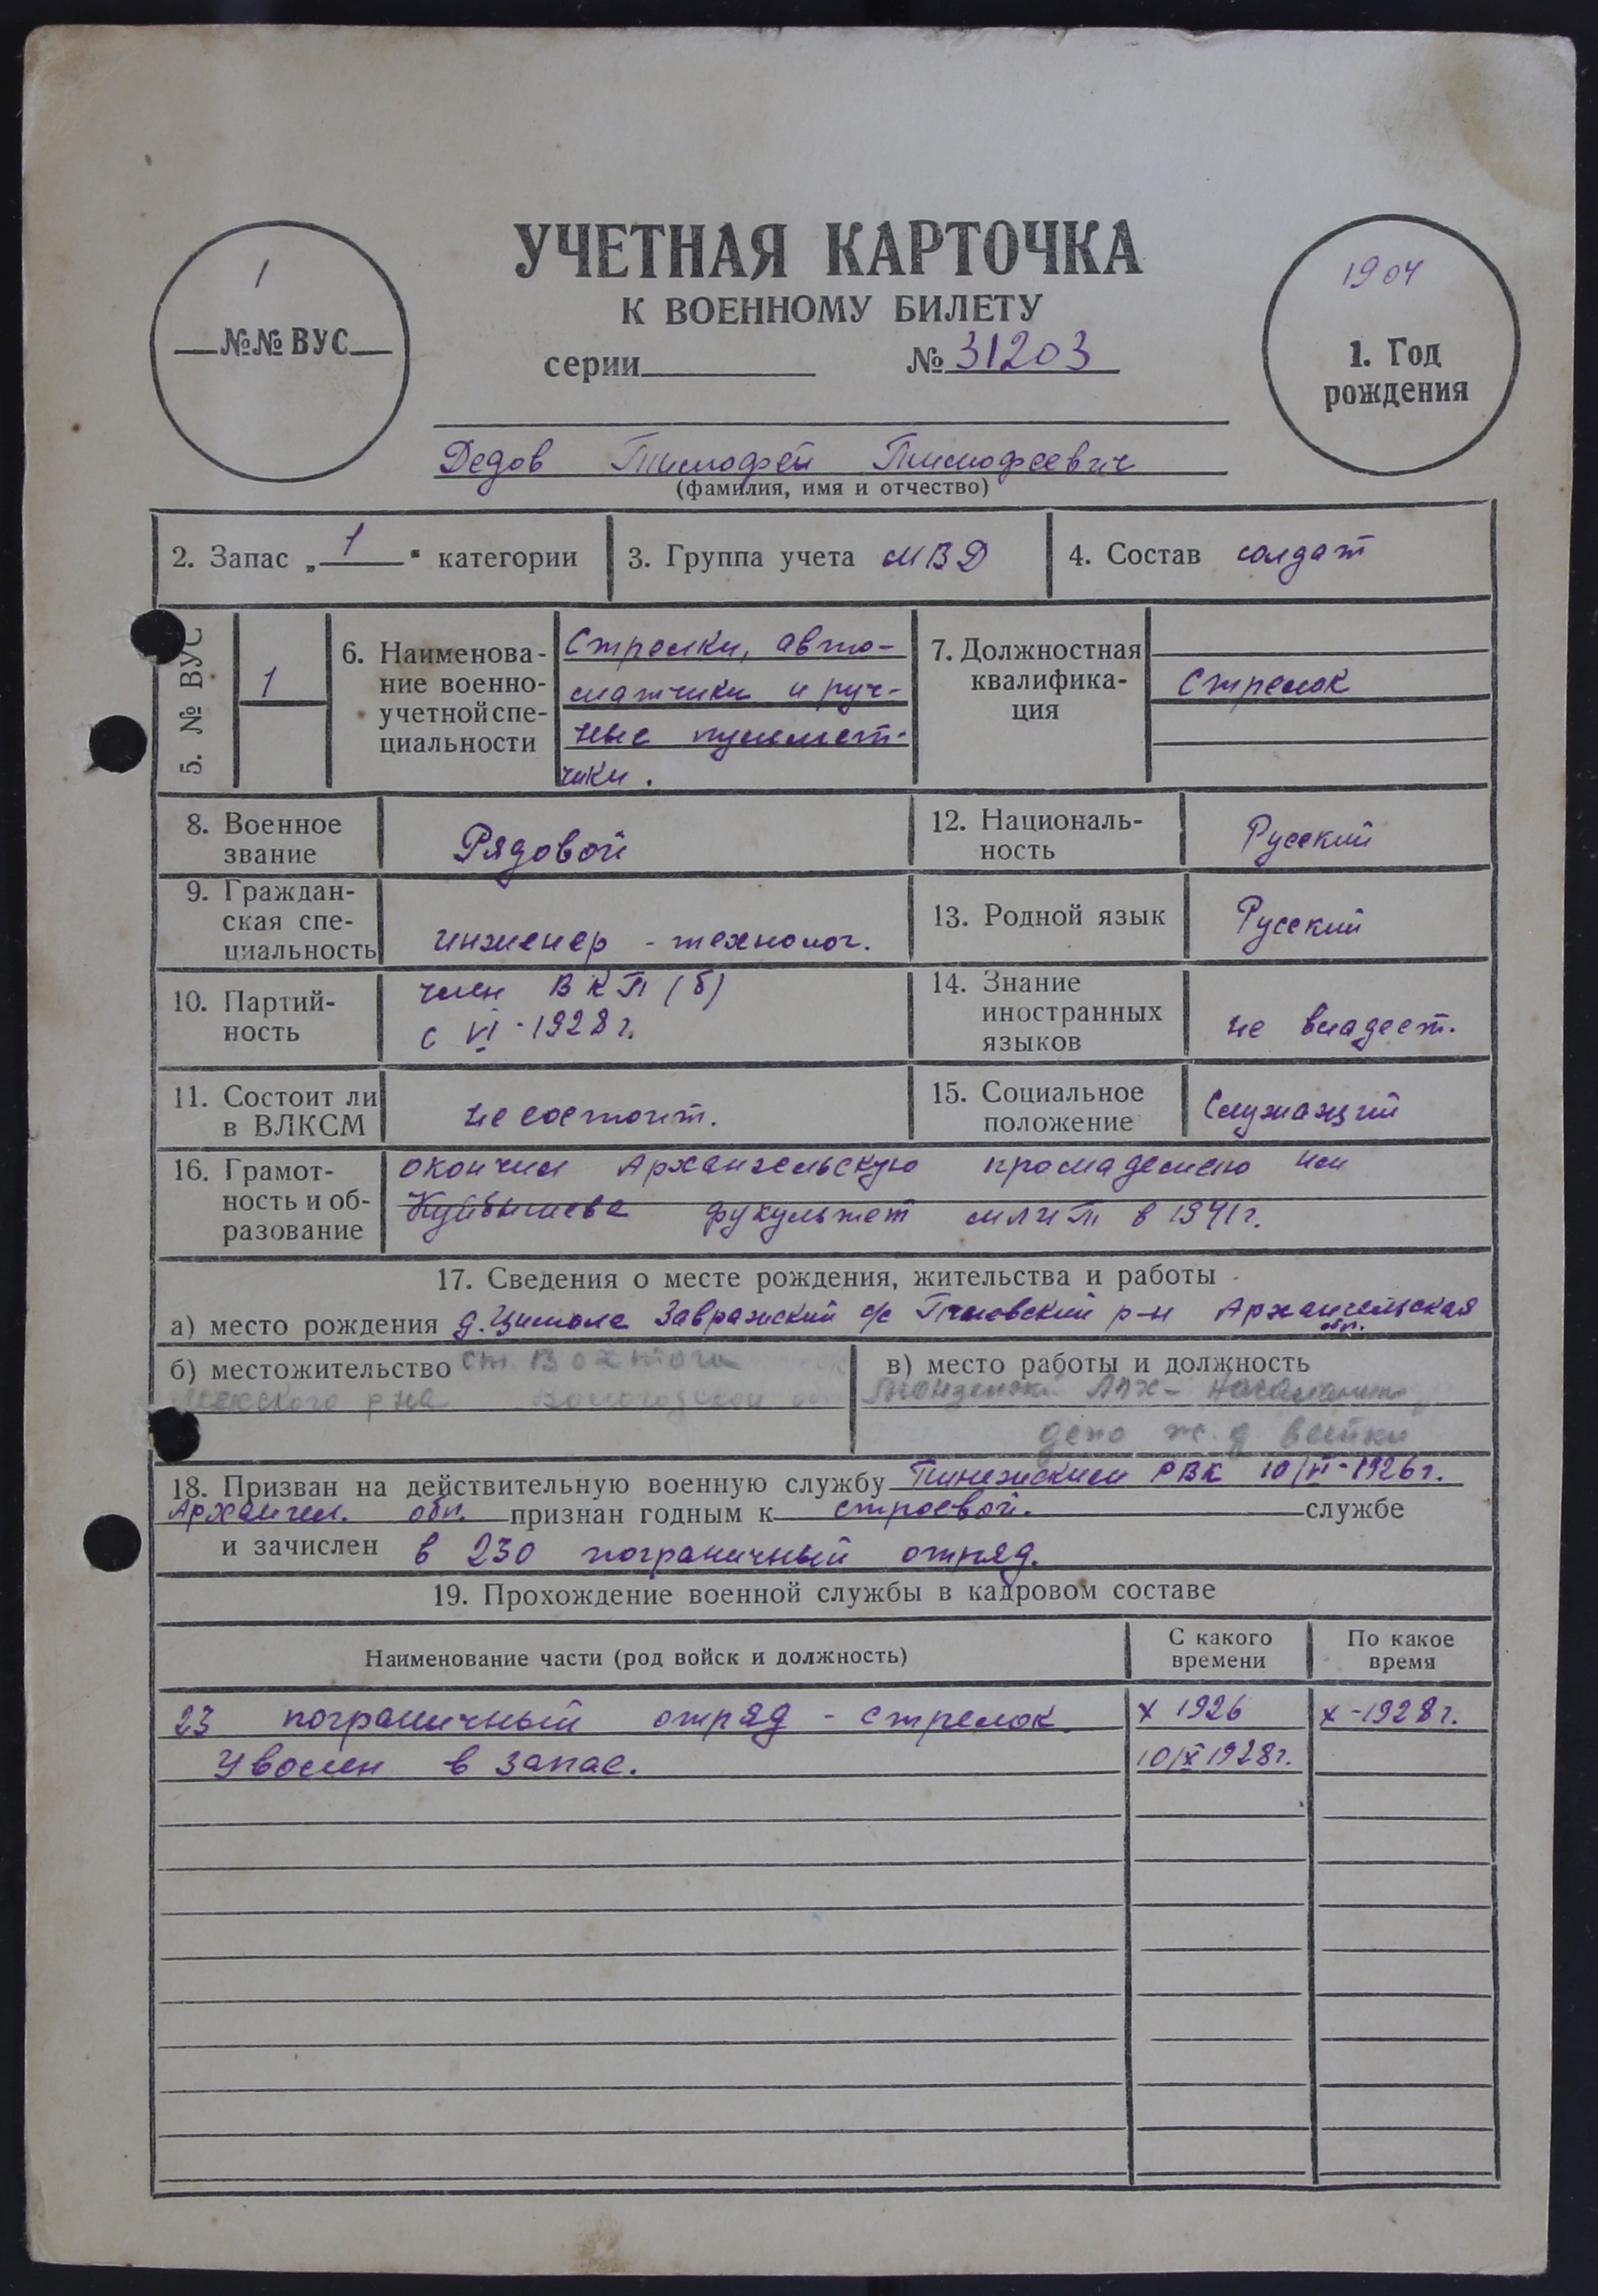 УЧЕТНАЯ КАРТОЧКА
К ВОЕННОМУ БИЛЕТУ
серии № 31203
1
№№ ВУС
1904
1. Год
рождения
Дедов Тимофей Тимофеевич
(фамилия, имя и отчество)
2. Запас „1" категории
3. Группа учета МВД
4. Состав солдат
5. № ВУС
1
6. Наименова-
ние военно-
учетной спе-
циальности
Стрелки, авто-
матчики и руч-
ные пулемет-
чики.
7. Должностная
квалифика-
ция
Стрелок
8. Военное
звание
Рядовой
12. Националь-
ность
Русский
9. Граждан-
ская спе-
циальность
инженер - технолог.
13. Родной язык
Русский
10. Партий-
ность
член ВКП(б)
с VI - 1928 г.
14. Знание
иностранных
языков
не владеет.
11. Состоит ли
в ВЛКСМ
не состоит.
15. Социальное
положение
Служащий
16. Грамот-
ность и об-
разование
окончил Архангельскую промадемию им
Куйбышева фукультет МЛиТ в 1941 г.
17. Сведения о месте рождения, жительства и работы
а) место рождения д. Цимола Завражский с/с р-н Архангельская
обл.
б) местожительство ст. Вохтога
р на Вологодской
в) место работы и должность
ЛПХ -
депо ж.д ветки
18. Призван на действительную военную службу Пинежским РВК 1926 г.
Архангел. обл. признан годным к строевой. службе
и зачислен в 230 пограничный отряд.
19. Прохождение военной службы в кадровом составе
Наименование части (род войск и должность)
С какого
времени
По какое
время
23 пограничный отряд - стрелок X 1926 X - 1928 г.
Уволен в запас. 10/X 1928 г.